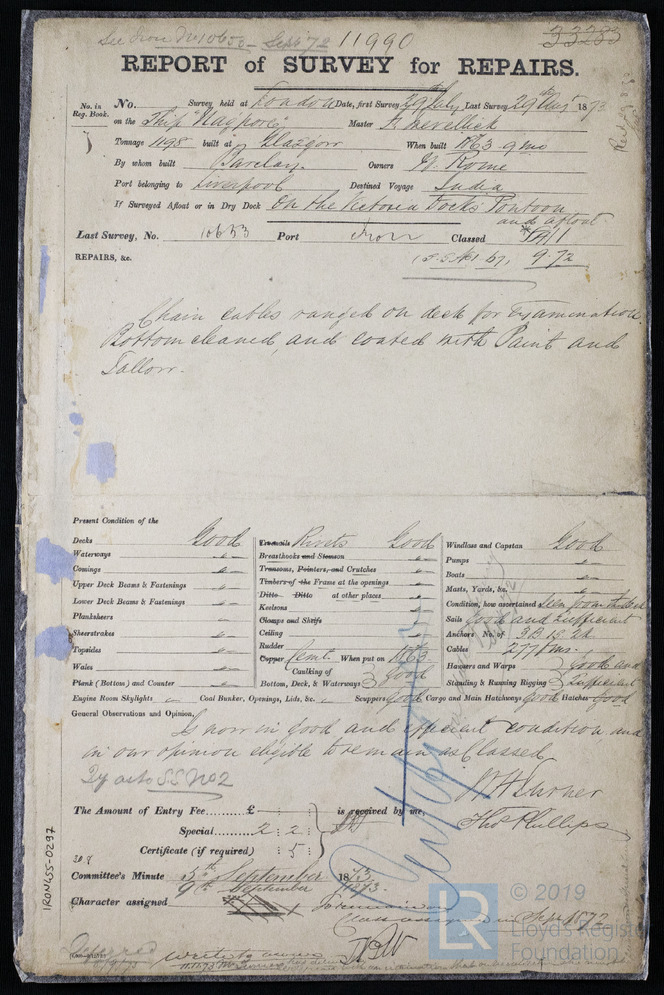 See Iron No 10653 - Sept 72 11990 33233
REPORT of SURVEY for REPAIRS.
No. in Reg. Book. No. Survey held at London Date, first Survey 29 July Last Survey 29th Aug 1873
on the Ship "Nagpore" Master
Tonnage 1198 built at Glasgow When built 1863. 9 mo
By whom built Barclay. Owners W. Rome
Port belonging to Liverpool Destined Voyage India
If Surveyed Afloat or in Dry Dock On the Victoria Docks Pontoon
and afloat
Last Survey, No. 10653 Port Iron Classed A1
REPAIRS, &c. 9.72
Chain cables ranged on deck for Examination.
Bottom cleaned, and coated with Paint and
Tallow.
Present Condition of the
Decks Good Treenails Rivets Good Windlass and Capstan Good
Waterways Breasthooks and Stemson Pumps
Comings Transoms, Pointers, and Crutches Boats
Upper Deck Beams & Fastenings Timbers of the Frame at the openings Masts, Yards, &c.
Lower Deck Beams & Fastenings Ditto Ditto at other places Condition, how ascertained Seen from the deck
Planksheers Keelsons Sails Good and Sufficient
Sheerstrakes Clamps and Shelfs Anchors No. of 3B. 1S. 2K
Topsides Ceiling Cables 277 fms.
Wales Rudder
Copper Cemt. When put on 1863 Hawsers and Warps Good and
Plank (Bottom) and Counter Caulking of Bottom, Deck, & Waterways Good Standing & Running Rigging Sufficient
Engine Room Skylights Coal Bunker, Openings, Lids, &c. Scuppers Good Cargo and Main Hatchways good Hatches Good
General Observations and Opinion,
Is now in good and efficient condition and
in our opinion eligible to remain as Classed
SS No 2
W H Turner
The Amount of Entry Fee £ is received by me,
Special 2 : 2 : Thos Phillips
Certificate (if required) : 5 :
30.8
Committee's Minute 5th September 1873.
9th September 1873.
Character assigned
Class assigned in Sept 1872
Deferred
IRON455-0297
© 2019
LR
Lloyd's Register
Foundation